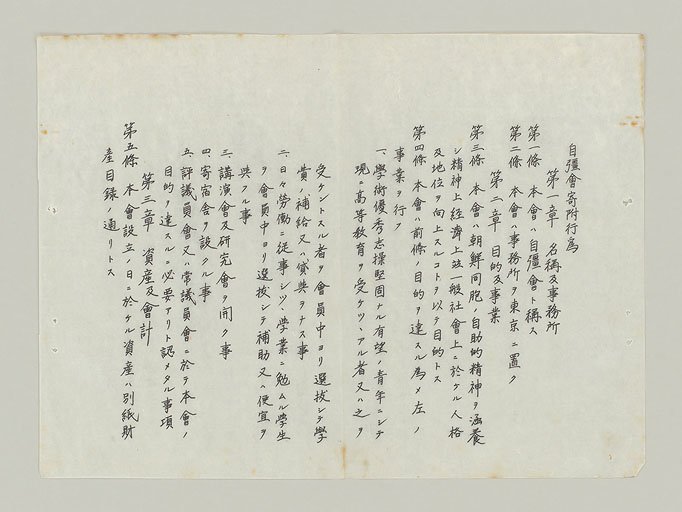 自彊會寄附行為
第一章 名稱及事務所
第一條 本會ハ自彊會ト稱ス
第二條 本會ハ事務所ヲ東京ニ置ク
第二章 目的及事業
第三條 本會ハ朝鮮同胞ノ自助的精神ヲ涵養
シ精神上経濟上竝一般社會上ニ於ケル人格
及地位ヲ向上スルコトヲ以テ目的トス
第四條 本會ハ前條ノ目的ヲ達スル為メ左ノ
事業ヲ行ク
一、學術優秀志操堅固ナル有望ノ青年ニシテ
現ニ高等教育ヲ受ケツヽアル者又ハ之ヲ
受ケントスル者ヲ會員中ヨリ選拔シテ學
費ノ補給又ハ貸與ヲナス事
二、日々勞働ニ從事シツヽ學業ニ勉ムル學生
ヲ會員中ヨリ選拔シテ補助又ハ便宜ヲ
與クル事
三、講演會及研究會ヲ開ク事
四、寄宿舎ヲ設クル事
五、評議員會又ハ常議員會ニ於テ本會ノ
目的ヲ達スルニ必要アリト認メタル事項
第三章 資産及會計
第五條 本會設立ノ日ニ於ケル資産ハ別紙財
産目録ノ通リトス